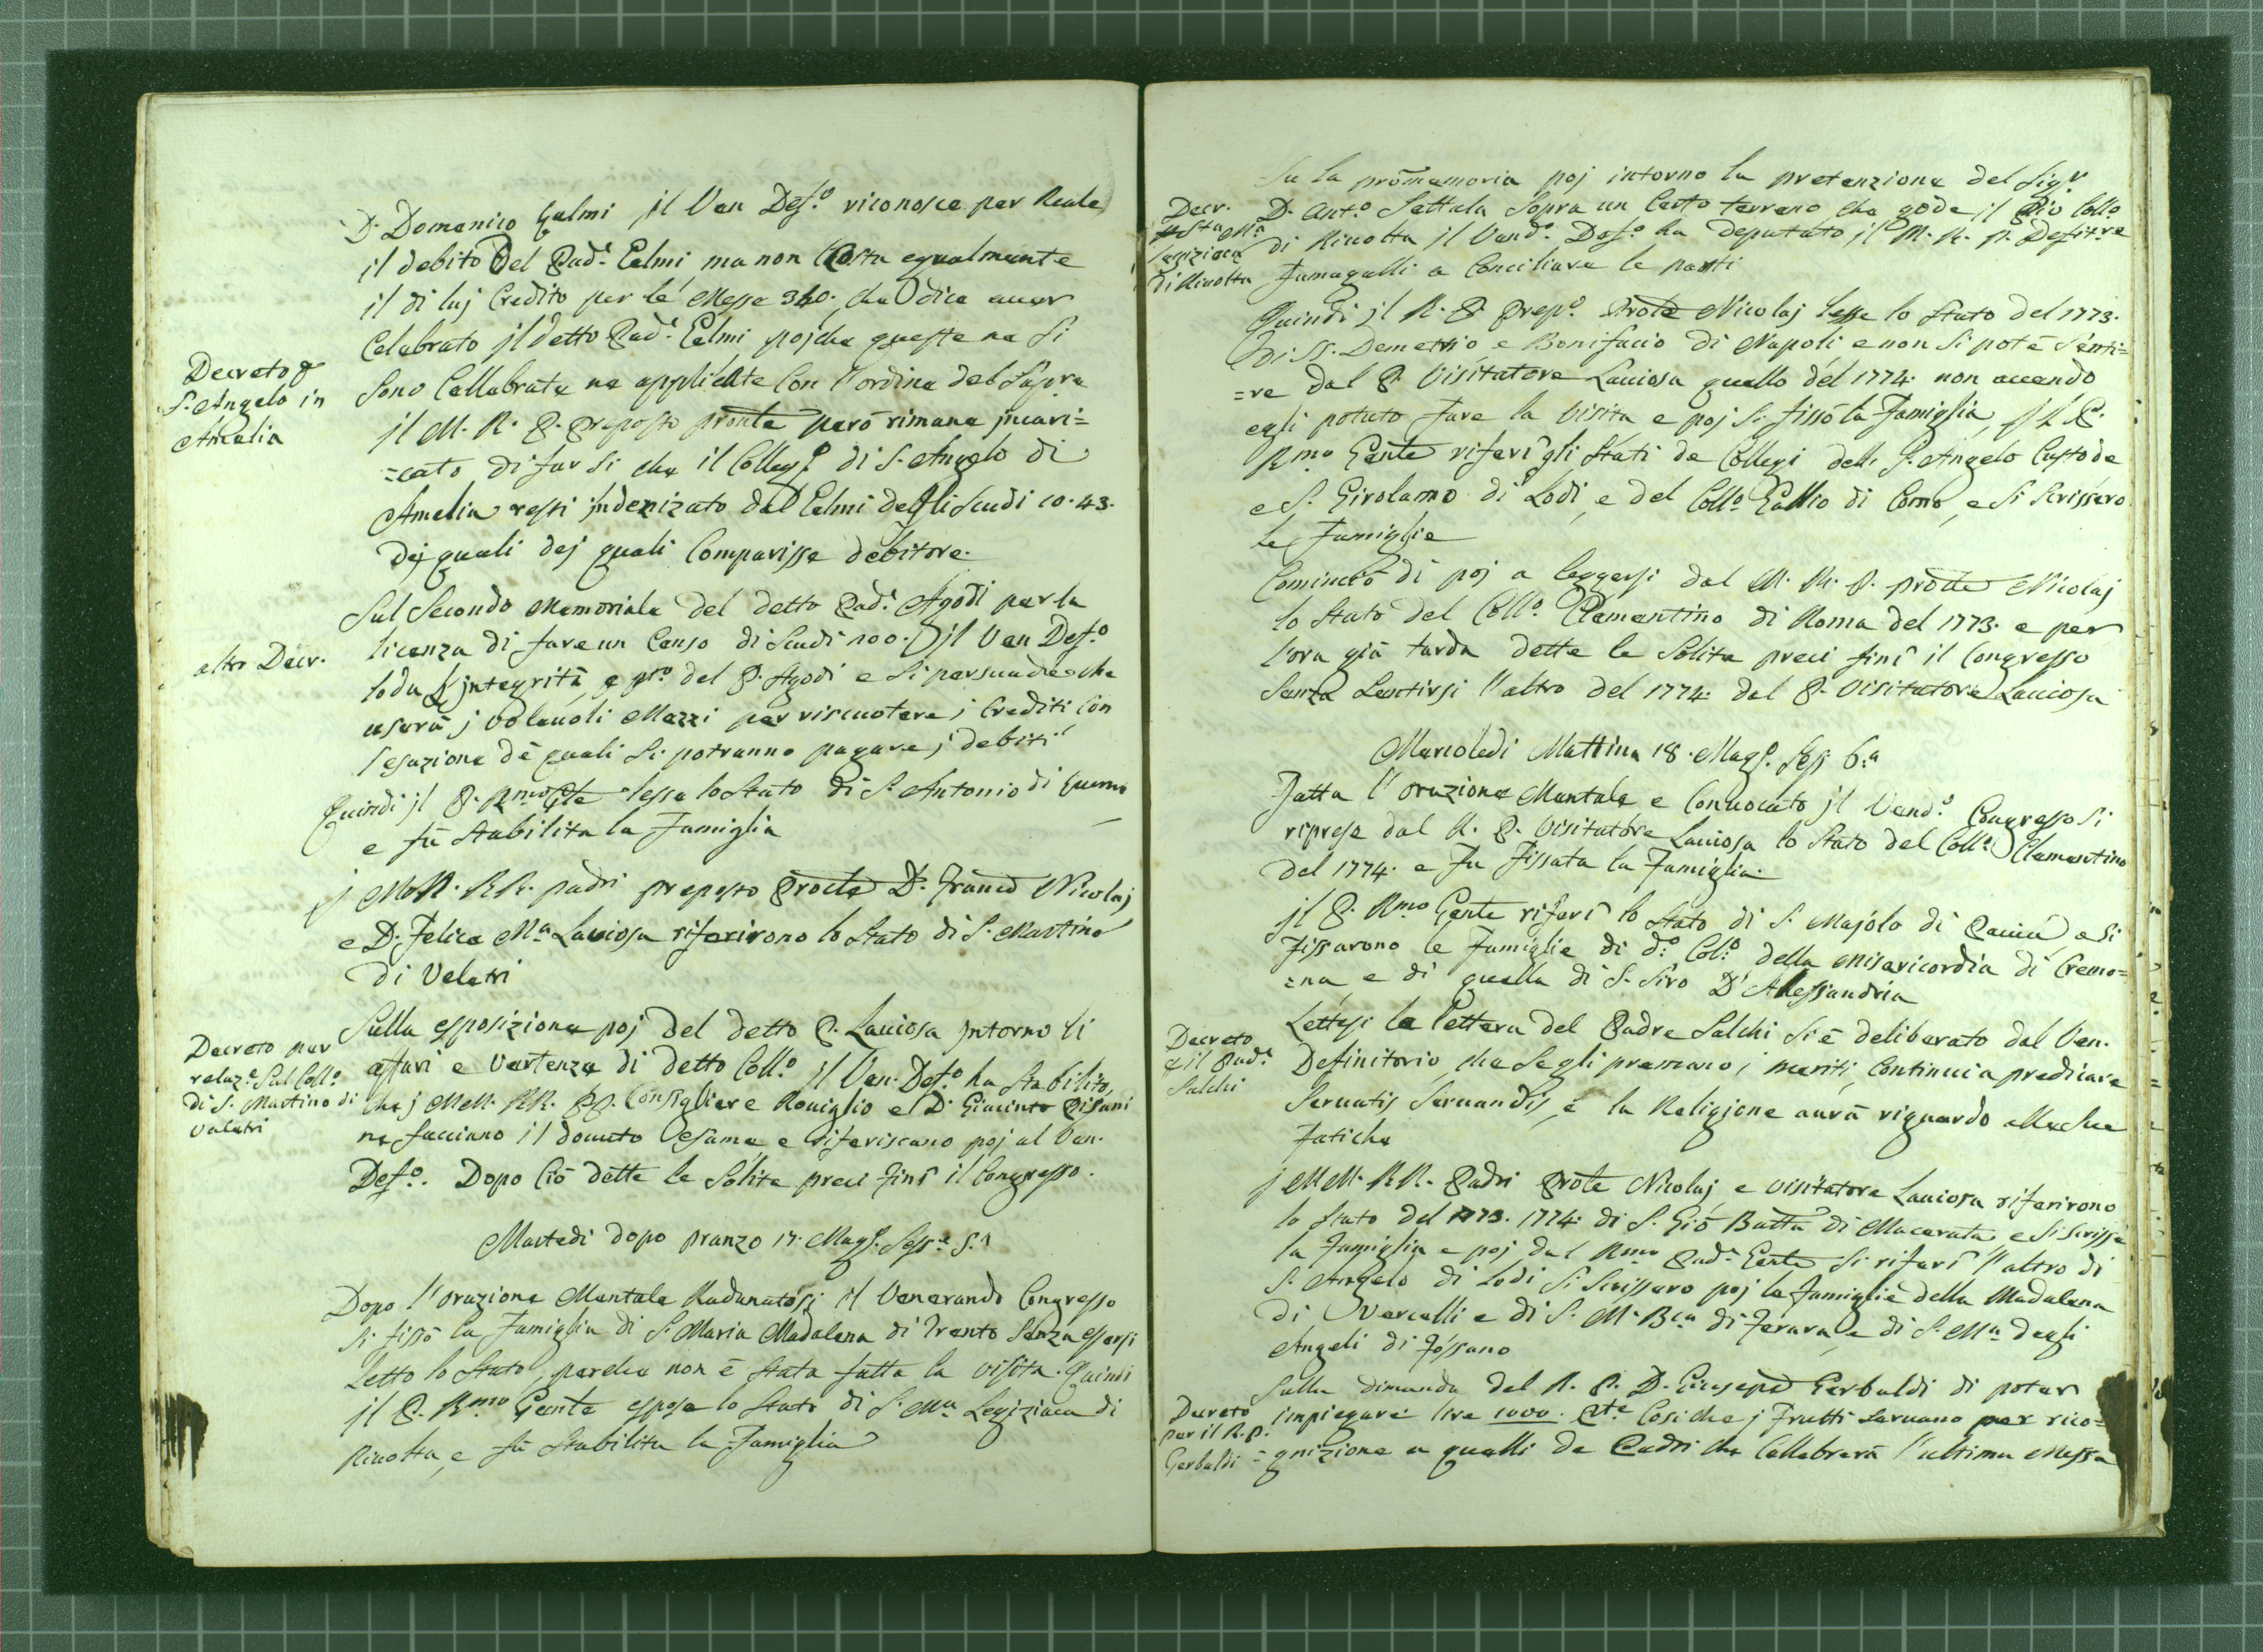 D. Domenico Gelmi il Ven Def.º riconosce per Reale
il debito del Pad.ᵉ Gelmi ma non Costa egualmente
il di luj Credito per le Messe 340. che dice auer
Celebrato il detto Pad.ᵉ Gelmi pojche queste ne si
Decreto p
S. Angelo in
Amelia
Sono Cellebrate ne applicate Con l'ordine del Sup.re
il M. R. P. Preposto pronle però rimane incari=
=cato di far si che il Colleg.º di S. Angelo di
Amelia resti indenizato dal Gelmi degli Scudi 10.43.
Dej quali dej quali Comparisse debitore.
Sul Secondo Memoriale del detto Pad.ᵉ Agodi per la
altro Decr.
licenza di fare un Censo di Scudi 100. il Ven Def.º
loda l'integrità e del P. Agodi e si persuade che
userà j voleuoli Mezzi per riscuotere i Crediti Con
l'esazione dè quali si potranno pagare j debiti
Quindi il P. Rmo Gle lesse lo Stato di S. Antonio di
e fù Stabilita la Famiglia
j MM. RR. padri preposto Prole D. Franco Nicolaj
e D. Felice Mᵃ Lauiosa riferirono lo Stato di S. Martino
di Veletri
Decreto per
relaz.ᵉ Sul Coll.º
di S. Martino di
Veletri
Sulla esposizione poj del detto P. Lauiosa intorno li
affari e Vertenze di detto Coll.º il Ven. Def.º ha Stabilito,
che j MM. RR. PP. Consigliere Rouiglio e D. Giacinto Pisani
ne facciano il douuto esame e riferiscano poj al Ven.
Def.º. Dopo Ciò dette le Solite preci finì il Congresso.
Martedi dopo pranzo 17. Magg. Sess.ᵉ 5.ᵃ
Dopo l'orazione Mentale Radunatosi il Venerando Congresso
Si fissò la Famiglia di S. Maria Madalena di Trento Senza essersi
Letto lo Stato, perche non è Stata fatta la visita. Quindi
il P. Rmo Gente espose lo Stato di S. Mᵃ Legiziaca di
Riuolta, e fù Stabilita la Famiglia
Su la promemoria poj intorno la pretenzione del Sig.r
Decr.
p Sta Mᵃ
Legiziaca
di Riuolta
D. Ant.º Settala Sopra un Certo terreno che gode il Pio Coll.º
di Riuolta il Vend.º Def.º ha deputato il M. R. P. Defit.re
Fumagalli a Conciliare le parti
Quindi il R. P. Prep.º Prole Nicolaj lesse lo Stato del 1773.
Di SS. Demetrio e Bonifacio di Napoli e non Si potè Senti=
=re dal P. Visitatore Lauiosa quello del 1774. non auendo
egli potuto fare la visita e poj Si fissò la Famiglia, il P.
Rmo Gente riferì gli Stati de Collegi dell' S. Angelo Custode
e S. Girolamo di Lodi, e del Coll.º Gallio di Como, e Si Scrissero
le Famiglie
Cominciò di poj a leggersi dal M. R. P. prole Nicolaj
lo Stato del Coll.º Clementino di Roma del 1773. e per
l'ora già tarda dette le Solite preci finì il Congresso
Senza Sentirsi l'altro del 1774. dal P. Visitatore Lauiosa
Mercoledi Mattina 18. Magg. Sess 6.ᵃ
Fatta l'orazione Mentale e Conuocato il Vend.º Congresso Si
riprese dal R. P. Visitatore Lauiosa lo Stato del Coll.º Clementino
del 1774. e Fu Fissata la Famiglia.
il P. Rmo Gente riferì lo Stato di S. Majolo di Pauia, e Si
Fissarono le Famiglie di d.º Col.º della Misericordia di Cremo=
=na, e di quella di S. Siro D'Alessandria
Decreto
p il Pad.ᵉ
Salchi
Lettasi la lettera del Padre Salchi Si è deliberato dal Ven.
Definitorio, che Se gli premano i meriti, Continui a predicare
Seruatis Seruandis, e la Religione aurà riguardo alle Sue
Fatiche
j MM. RR. Padri Prole Nicolaj e Visitatore Lauiosa riferirono
lo Stato del 1773. 1774. di S. Gio Batta di Macerata e Si Scrisse
la Famiglia e poj dal Rmo Pad.ᵉ Gente Si riferì l'altro di
S. Angelo di Lodi Si Scrissero poj le Famiglie della Madalena
di Vercelli e di S. M. Bca di Ferara, e di S. Mᵃ degli
Angeli di Fossano
Sulla dimanda del R. P. D. Giuseppe Gerbaldi di poter
Decreto
per il R. P.
Gerbaldi
impiegare lire 1000. Così che j Frutti Seruano per rico=
=gnizione a quelli de Padri che Cellebrerà l'ultima Messa